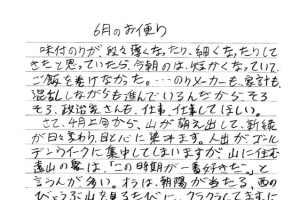 6月のお便り
味付のりが段々薄くなったり、細くなったりして
きたと思っていたら、今朝のは、短かくなっていて、
ご飯を巻けなかった。…のりメーカーも、家計も、
混乱しながらも進んでいるんだから、そろ
そろ、政治家さんも、仕事、仕事してほしい。
さて、4月上旬から、山が萌え出して、新緑
が日々変わり、目と心に染みます。人出がゴール
デンウイークに集中してしまいますが、山に住む
遠山の衆は、"この時期が一番好きだ"、と
言う人が多い。オラは、朝陽が当たる、西の
びょうぶ山を見るたびに、クラクラしてますに